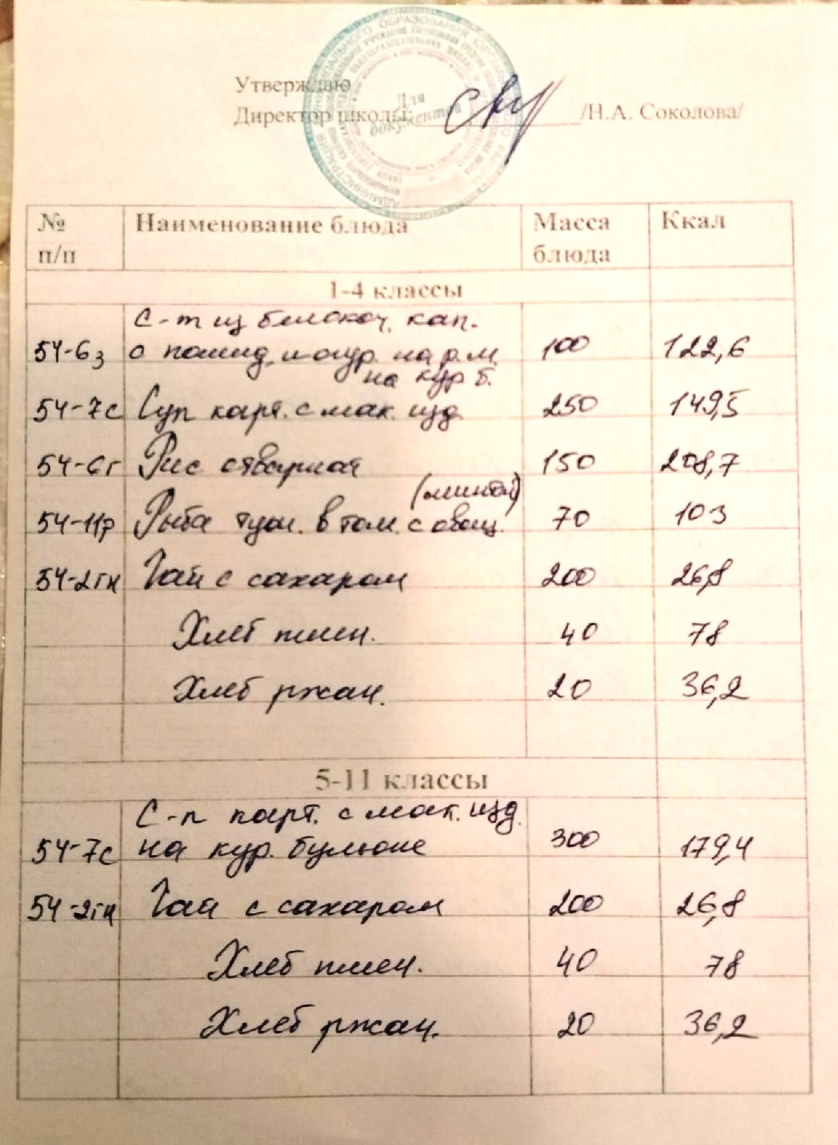 Утверждаю
Директор школы: /Н.А. Соколова/
Для документов
№ п/п Наименование блюда Масса блюда Ккал
1-4 классы
С-т из белокоч. кап.
54-6з с помид. и огур. на р.м. 100 122,6
на кур б.
54-7с Суп карт. с мак. изд. 250 149,5
54-6г Рис отварной 150 208,7
(минтай)
54-11р Рыба туш. в том. с овощ. 70 103
54-2гн Чай с сахаром 200 26,8
Хлеб пшен. 40 78
Хлеб ржан. 20 36,2
5-11 классы
С-п карт. с мак. изд.
54-7с на кур. бульоне 300 179,4
54-2гн Чай с сахаром 200 26,8
Хлеб пшен. 40 78
Хлеб ржан. 20 36,2